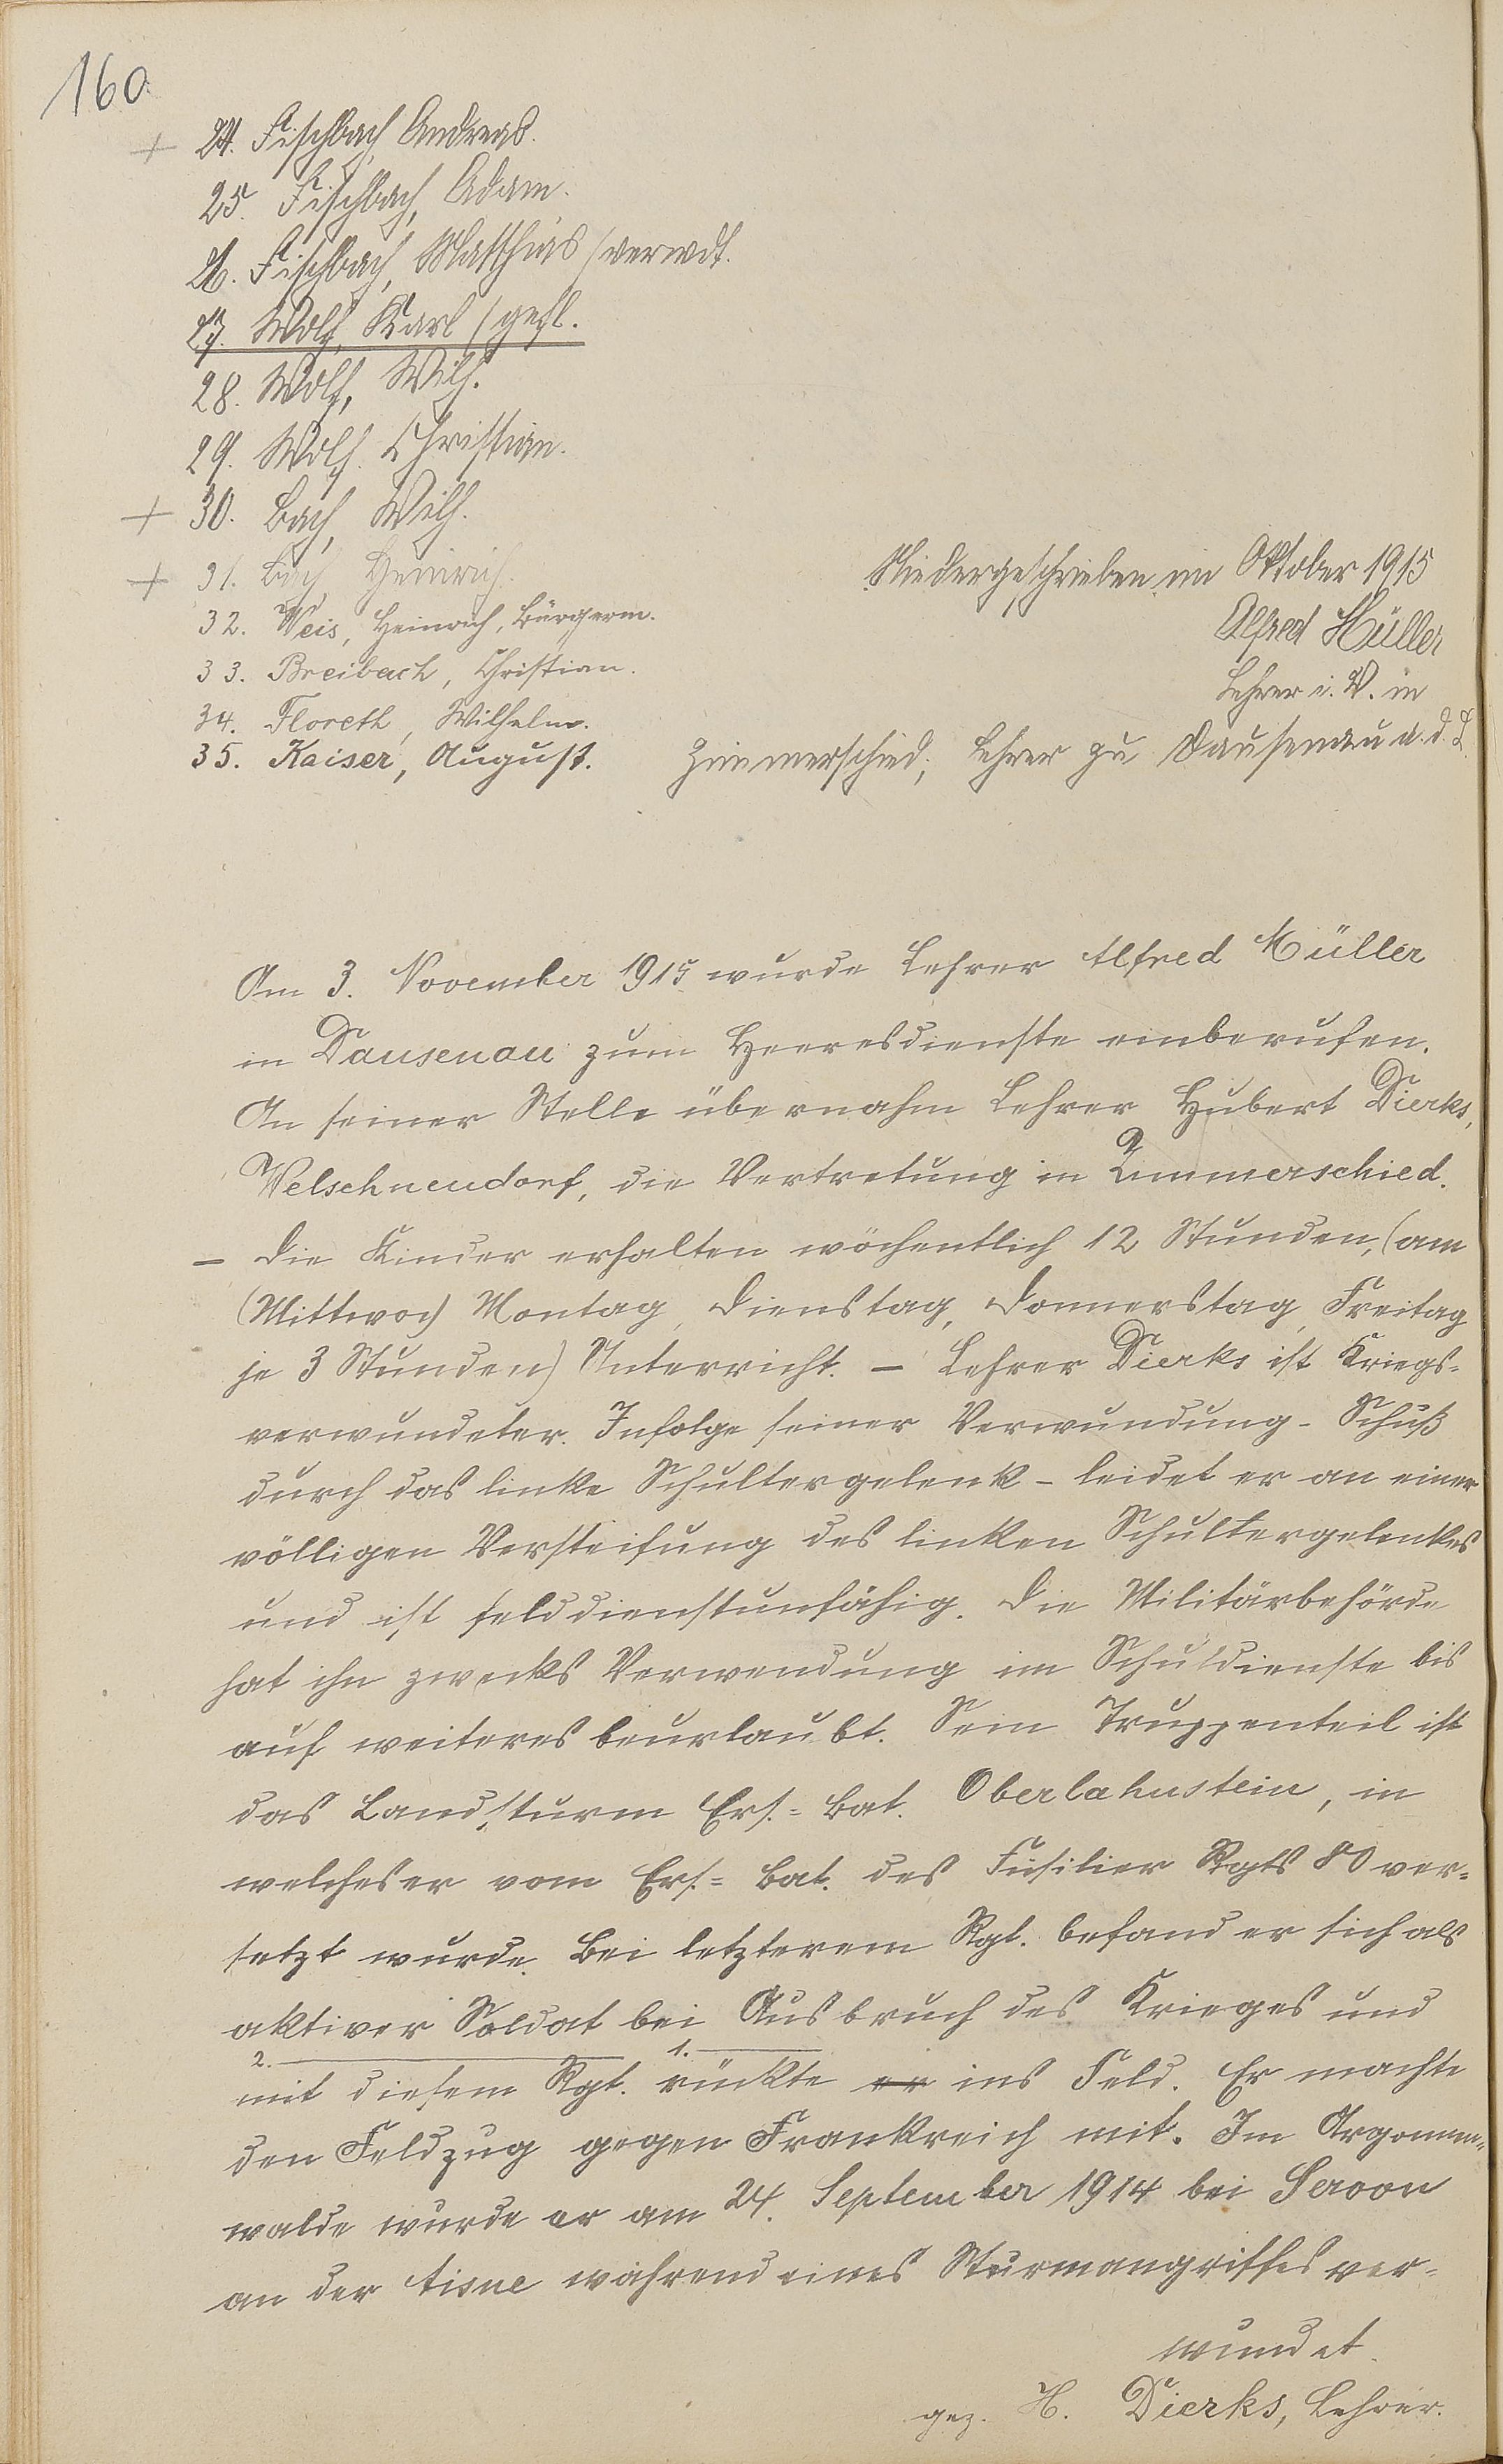 160
+ 24. Fischbach, Andreas.
25. Fischbach, Adam.
26. Fischbach, Matthias (verwdt.
27. Wolf, Karl (gefl.
28. Wolf, Wilh.
29. Wolf. Christian.
+ 30. Bach, Wilh.
+ 31. Bach, Heinrich.
32. Weis, Heinrich, Bürgerm.
33. Breibach, Christian.
34. Floreth, Wilhelm.
35. Kaiser, August.
Niedergeschrieben im Oktober 1915
Alfred Müller
Lehrer i. V. in
Zimmerschied, Lehrer zu Dausenau a. d. L.
Am 3. November 1915 wurde Lehrer Alfred Müller
in Dausenau zum Heeresdienste einberufen.
An seiner Stelle übernahm Lehrer Hubert Dierks,
Welschneudorf, die Vertretung in Zimmerschied.
– Die Kinder erhalten wöchentlich 12 Stunden, (am
(Mittwoch) Montag, Dienstag, Donnerstag, Freitag
je 3 Stunden) Unterricht. – Lehrer Dierks ist Kriegs-
verwundeter. Infolge seiner Verwundung – Schuß
durch das linke Schultergelenk – leidet er an einer
völligen Versteifung des linken Schultergelenkes
und ist felddienstunfähig. Die Militärbehörde
hat ihn zwecks Verwendung im Schuldienste bis
auf weiteres beurlaubt. Sein Truppenteil ist
das Landsturm Ers.-Bat. Oberlahnstein, in
welches er vom Ers.-Bat. des Füsilier Rgts 80 ver-
setzt wurde. Bei letzterem Rgt. befand er sich als
aktiver Soldat bei Ausbruch des Krieges und
2. 1.
mit diesem Rgt. rückte er ins Feld. Er machte
den Feldzug gegen Frankreich mit. Im Argonnen-
walde wurde er am 24. September 1914 bei Servon
an der Aisne während eines Sturmangriffes ver-
wundet.
gez. H. Dierks, Lehrer.